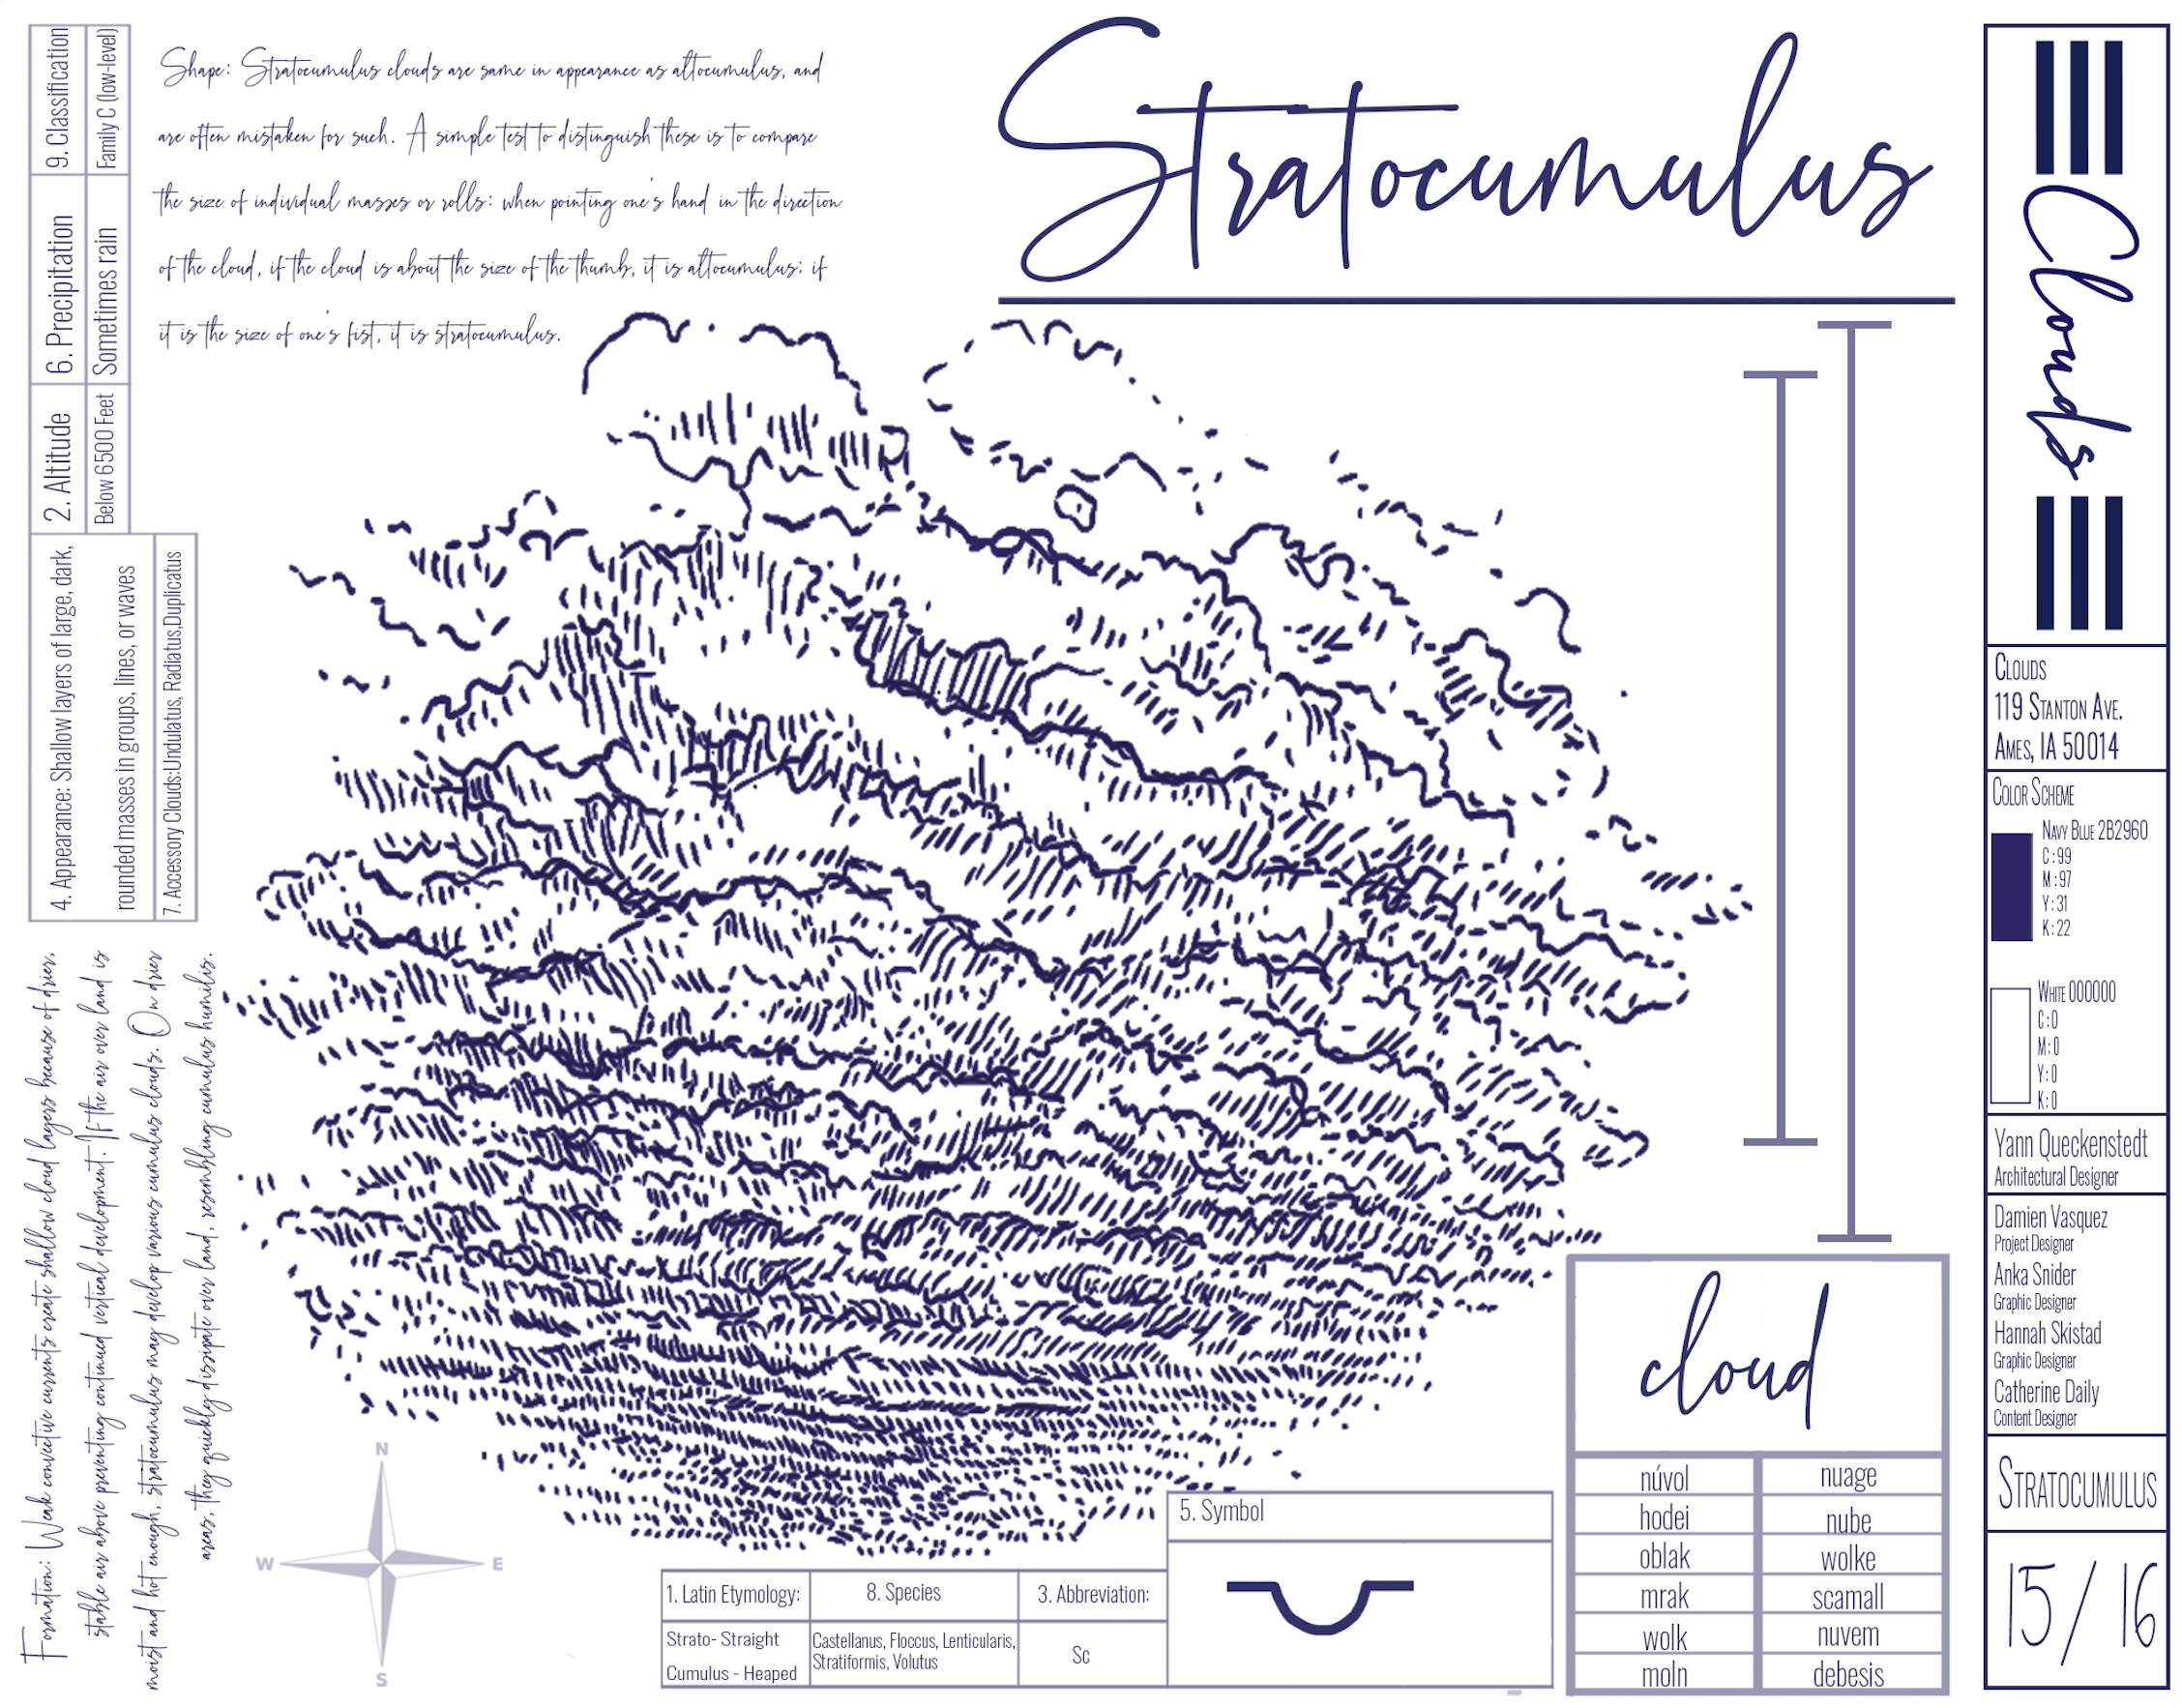 Stratocumulus
Shape: Stratocumulus clouds are same in appearance as altocumulus, and
are often mistaken for such. A simple test to distinguish these is to compare
the size of individual masses or rolls: when pointing one's hand in the direction
of the cloud, if the cloud is about the size of the thumb, it is altocumulus; if
it is the size of one's fist, it is stratocumulus.
9. Classification
Family C (low-level)
6. Precipitation
Sometimes rain
2. Altitude
Below 6500 Feet
4. Appearance: Shallow layers of large, dark,
rounded masses in groups, lines, or waves
7. Accessory Clouds:Undulatus, Radiatus,Duplicatus
Formation: Weak convective currents create shallow cloud layers because of drier,
stable air above preventing continued vertical development. If the air over land is
moist and hot enough, stratocumulus may develop various cumulus clouds. On drier
areas, they quickly dissipate over land, resembling cumulus humilis.
N
W
E
S
1. Latin Etymology:
Strato- Straight
Cumulus - Heaped
8. Species
Castellanus, Floccus, Lenticularis,
Stratiformis, Volutus
3. Abbreviation:
Sc
5. Symbol
cloud
núvol
nuage
hodei
nube
oblak
wolke
mrak
scamall
wolk
nuvem
moln
debesis
Clouds
Clouds
119 Stanton Ave.
Ames, IA 50014
Color Scheme
Navy Blue 2B2960
C:99
M:97
Y:31
K:22
White 000000
C:0
M:0
Y:0
K:0
Yann Queckenstedt
Architectural Designer
Damien Vasquez
Project Designer
Anka Snider
Graphic Designer
Hannah Skistad
Graphic Designer
Catherine Daily
Content Designer
Stratocumulus
15/16